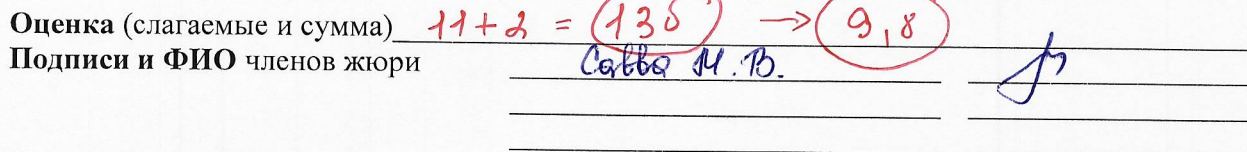 Оценка (слагаемые и сумма) 11+2 = 13б → 9,8
Подписи и ФИО членов жюри Савва М.В.